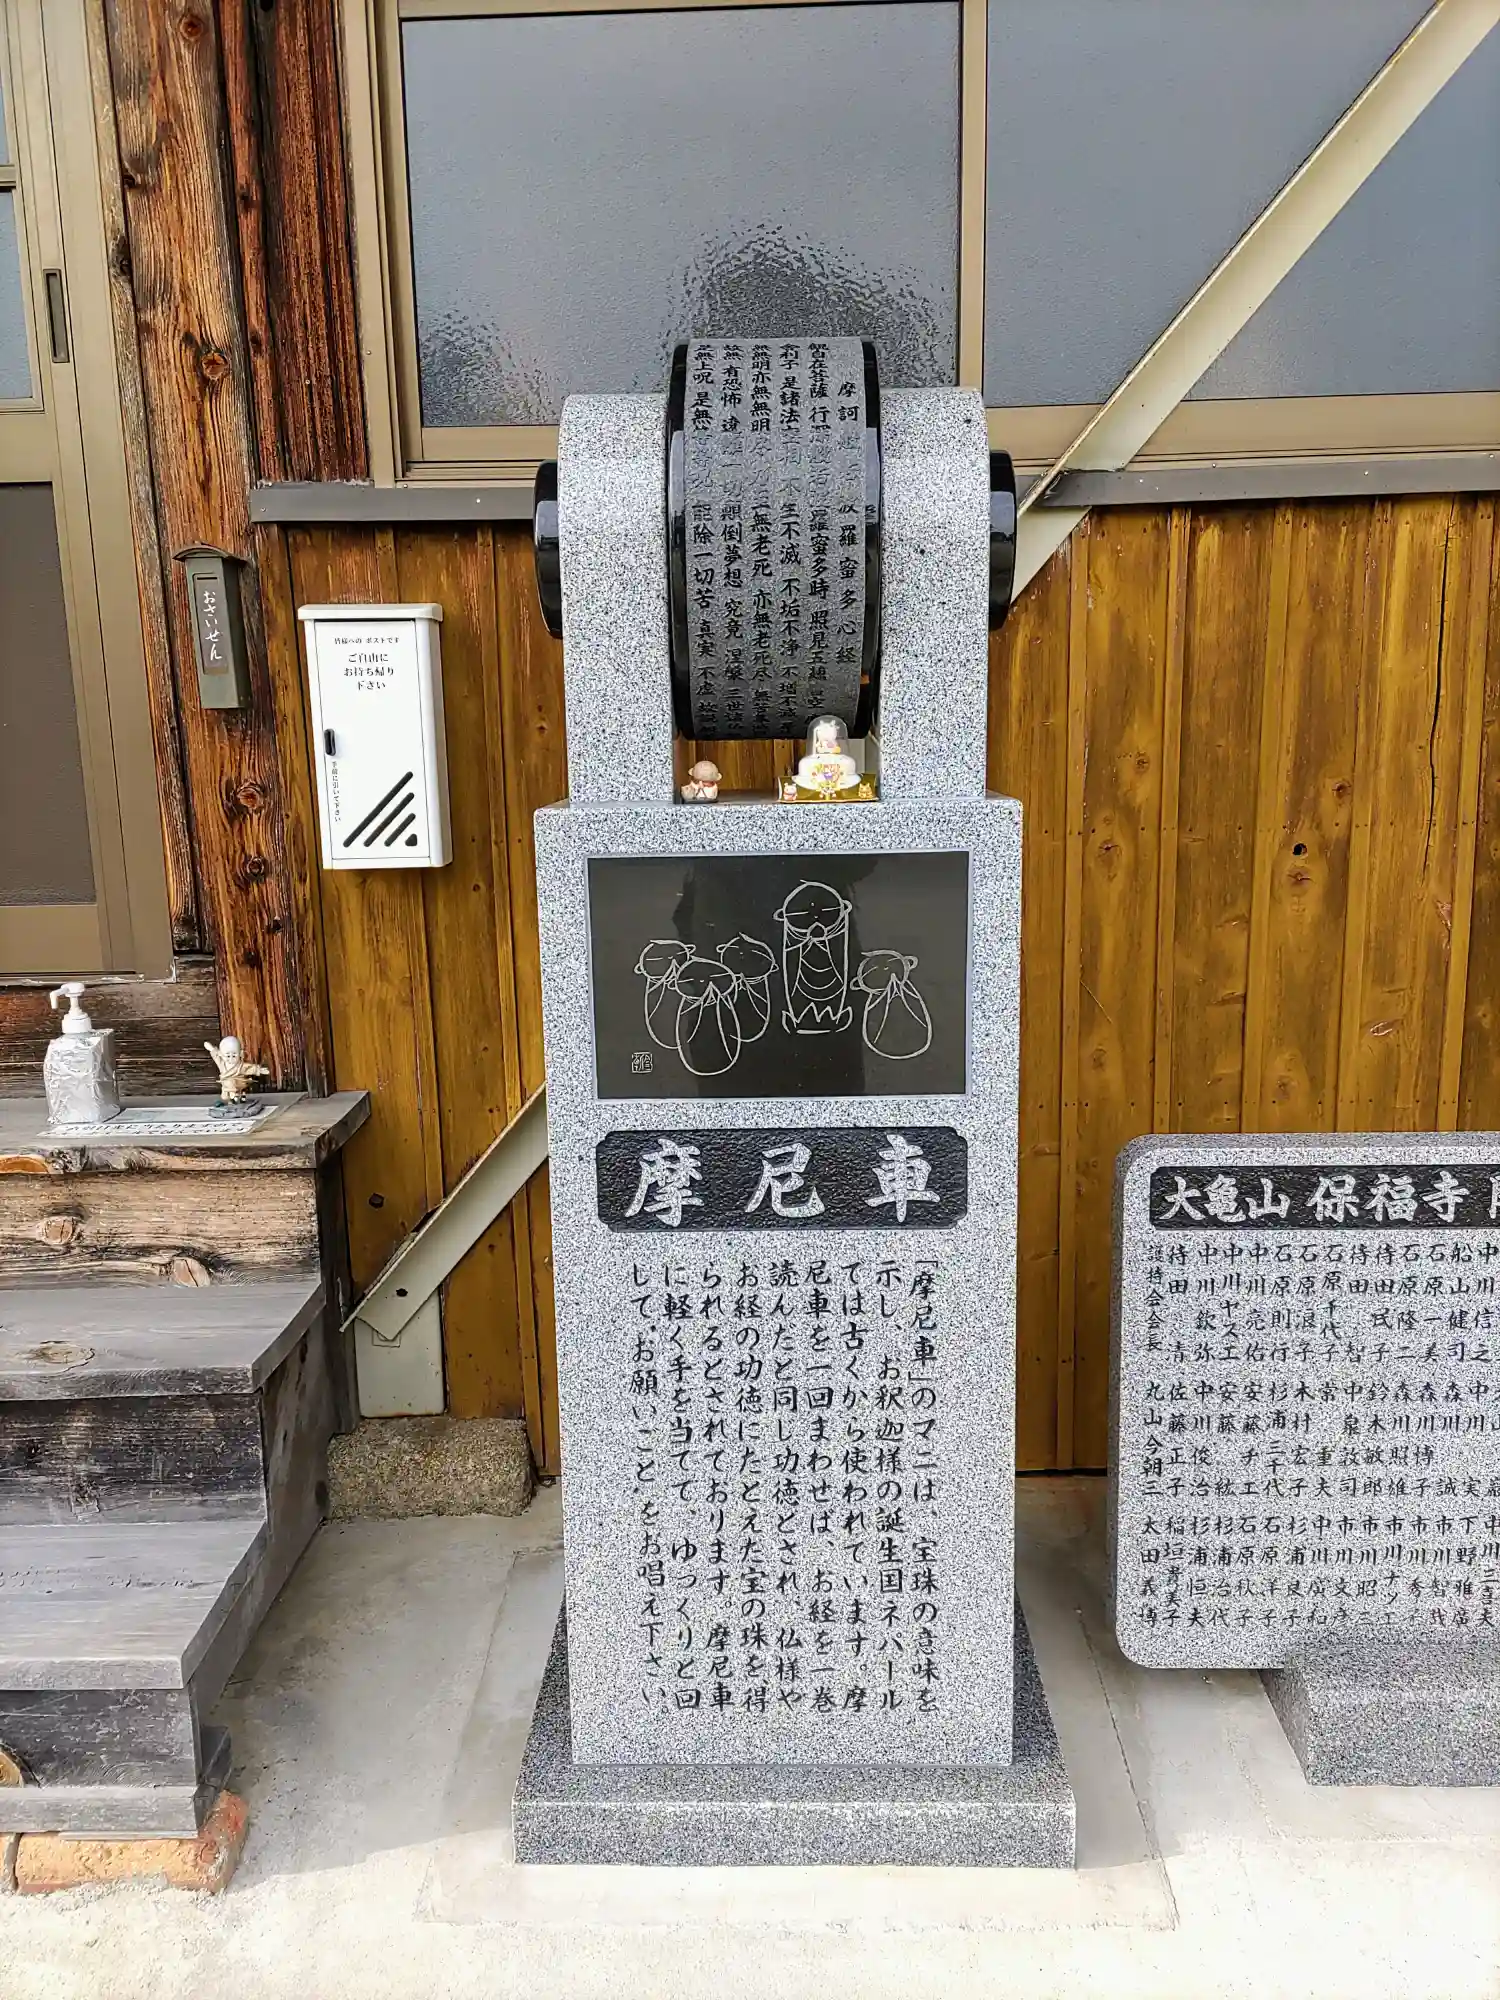 摩訶般若波羅蜜多心経
観自在菩薩 行深般若波羅蜜多時 照見五蘊皆空
舎利子 是諸法空相 不生不滅 不垢不浄 不増不減 是
無無明亦無無明尽 乃至無老死 亦無老死尽 無苦集
故無有恐怖 遠離一切顛倒夢想 究竟涅槃 三世諸仏
是無上呪 是無等等呪 能除一切苦 真実不虚 故説般
おさいせん
皆様への ポストです
ご自由に
お持ち帰り
下さい
手前に引いて下さい
摩尼車
「摩尼車」のマニは、宝珠の意味を
示し、お釈迦様の誕生国ネパール
ては古くから使われています。摩
尼車を一回まわせば、お経を一巻
読んだと同じ功徳とされ、仏様や
お経の功徳にたとえた宝の珠を得
られるとされております。摩尼車
に軽く手を当てて、ゆっくりと回
して、お願いごと、をお唱え下さい。
大亀山 保福寺
中川信之
船山健司
石原一美
石原隆二
待田民子
待田智
石原千代子
石原浪子
石原則行
中川亮佑
中川ヤス工
中川欽弥
待田清
護持会会長
森川実
森川誠
森川博子
森川照雄
鈴木敏郎
中泉敦司
常重夫
木村宏子
杉浦三千代
安藤チ工
安藤紘
中川俊治
佐藤正子
丸山今朝三
下野雅廣
市川智哉
市川秀子
市川ナツエ
市川昭三
市川文彦
中川廣和
杉浦良子
石原洋子
石原秋子
杉浦治代
杉浦恒夫
稲垣寿美子
太田義博